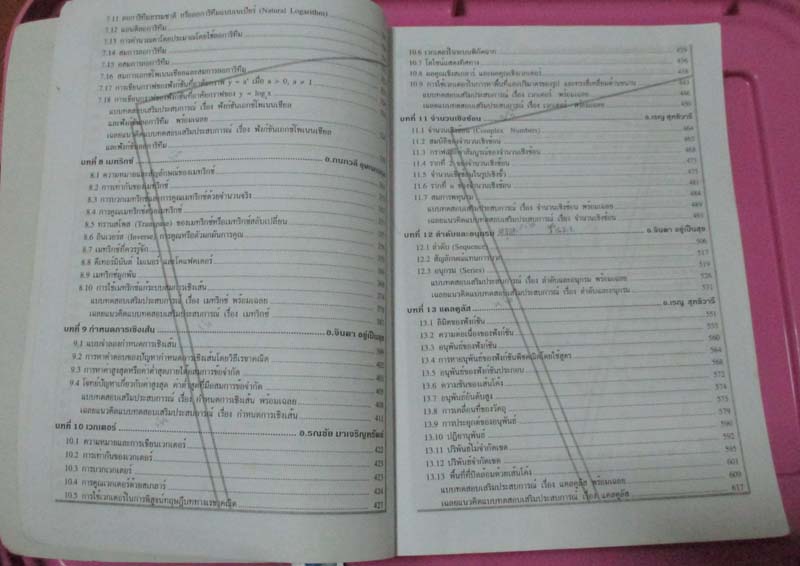 7.11 ลอการิทึมธรรมชาติ หรือลอการิทึมแบบเนเปียร์ (Natural Logarithm)
7.12 แอนติลอการิทึม
7.13 การคำนวณค่าโดยประมาณโดยใช้ลอการิทึม
7.14 สมการลอการิทึม
7.15 อสมการลอการิทึม
7.16 สมการเอกซ์โพเนนเชียลและสมการลอการิทึม
7.17 การเขียนกราฟของฟังก์ชันที่อาศัยกราฟ y = aˣ เมื่อ a > 0, a ≠ 1
7.18 การเขียนกราฟของฟังก์ชันที่อาศัยกราฟของ y = logₐx
แบบทดสอบเสริมประสบการณ์ เรื่อง ฟังก์ชันเอกซ์โพเนนเชียล
และฟังก์ชันลอการิทึม พร้อมเฉลย
เฉลยแนวคิดแบบทดสอบเสริมประสบการณ์ เรื่อง ฟังก์ชันเอกซ์โพเนนเชียล
และฟังก์ชันลอการิทึม
บทที่ 8 เมทริกซ์
8.1 ความหมายและสัญลักษณ์ของเมทริกซ์
8.2 การเท่ากันของเมทริกซ์
8.3 การบวกเมทริกซ์และการคูณเมทริกซ์ด้วยจำนวนจริง
8.4 การคูณเมทริกซ์ด้วยเมทริกซ์
8.5 ทรานสโพส (Transpose) ของเมทริกซ์หรือเมทริกซ์สลับเปลี่ยน
8.6 อินเวอร์ส (Inverse) การคูณหรือตัวผกผันการคูณ
8.7 เมทริกซ์ที่ควรรู้จัก
8.8 ดีเทอร์มินันต์ ไมเนอร์ และโคแฟคเตอร์
8.9 เมทริกซ์ผูกพัน
8.10 การใช้เมทริกซ์แก้ระบบสมการเชิงเส้น
แบบทดสอบเสริมประสบการณ์ เรื่อง เมทริกซ์ พร้อมเฉลย
เฉลยแนวคิดแบบทดสอบเสริมประสบการณ์ เรื่อง เมทริกซ์
บทที่ 9 กำหนดการเชิงเส้น อ.จินดา อยู่เป็นสุข
9.1 แบบจำลองกำหนดการเชิงเส้น
9.2 การหาคำตอบของปัญหากำหนดการเชิงเส้นโดยวิธีเรขาคณิต
9.3 การหาค่าสูงสุดหรือค่าต่ำสุดภายใต้อสมการข้อจำกัด
9.4 โจทย์ปัญหาเกี่ยวกับค่าสูงสุด ค่าต่ำสุดที่มีอสมการข้อจำกัด
แบบทดสอบเสริมประสบการณ์ เรื่อง กำหนดการเชิงเส้น พร้อมเฉลย
เฉลยแนวคิดแบบทดสอบเสริมประสบการณ์ เรื่อง กำหนดการเชิงเส้น 411
บทที่ 10 เวกเตอร์ อ.รณชัย มาเจริญทรัพย์
10.1 ความหมายและการเขียนเวกเตอร์ 422
10.2 การเท่ากันของเวกเตอร์ 422
10.3 การบวกเวกเตอร์ 423
10.4 การคูณเวกเตอร์ด้วยสเกลาร์ 424
10.5 การใช้เวกเตอร์ในการพิสูจน์ทฤษฎีบททางเรขาคณิต 427
10.6 เวกเตอร์ในระบบพิกัดฉาก
10.7 โคไซน์แสดงทิศทาง
10.8 ผลคูณเชิงสเกลาร์ และผลคูณเชิงเวกเตอร์ 438
10.9 การใช้เวกเตอร์ในการหาพื้นที่และปริมาตรของรูป และทรงสี่เหลี่ยมด้านขนาน 443
แบบทดสอบเสริมประสบการณ์ เรื่อง เวกเตอร์ พร้อมเฉลย 446
เฉลยแนวคิดแบบทดสอบเสริมประสบการณ์ เรื่อง เวกเตอร์ พร้อมเฉลย 450
บทที่ 11 จำนวนเชิงซ้อน อ.เรณู สุทธิวารี
11.1 จำนวนเชิงซ้อน (Complex Numbers) 464
11.2 สมบัติของจำนวนเชิงซ้อน 465
11.3 กราฟและค่าสัมบูรณ์ของจำนวนเชิงซ้อน 468
11.4 รากที่ 2 ของจำนวนเชิงซ้อน 473
11.5 จำนวนเชิงซ้อนในรูปเชิงขั้ว 475
11.6 รากที่ n ของจำนวนเชิงซ้อน 481
11.7 สมการพหุนาม 484
แบบทดสอบเสริมประสบการณ์ เรื่อง จำนวนเชิงซ้อน พร้อมเฉลย 489
เฉลยแนวคิดแบบทดสอบเสริมประสบการณ์ เรื่อง จำนวนเชิงซ้อน
บทที่ 12 ลำดับและอนุกรม อ.จินดา อยู่เป็นสุข
12.1 ลำดับ (Sequence) 506
12.2 สัญลักษณ์แทนการบวก 517
12.3 อนุกรม (Series) 519
แบบทดสอบเสริมประสบการณ์ เรื่อง ลำดับและอนุกรม พร้อมเฉลย
เฉลยแนวคิดแบบทดสอบเสริมประสบการณ์ เรื่อง ลำดับและอนุกรม
บทที่ 13 แคลคูลัส อ.เรณู สุทธิวารี
13.1 ลิมิตของฟังก์ชัน 551
13.2 ความต่อเนื่องของฟังก์ชัน 555
13.3 อนุพันธ์ของฟังก์ชัน
13.4 การหาอนุพันธ์ของฟังก์ชันพีชคณิตโดยใช้สูตร 564
13.5 อนุพันธ์ของฟังก์ชันประกอบ 568
13.6 ความชันของเส้นโค้ง 572
13.7 อนุพันธ์อันดับสูง 574
13.8 การเคลื่อนที่ของวัตถุ 575
13.9 การประยุกต์ของอนุพันธ์ 579
13.10 ปฏิยานุพันธ์ 590
13.11 ปริพันธ์ไม่จำกัดเขต 592
13.12 ปริพันธ์จำกัดเขต 595
13.13 พื้นที่ที่ปิดล้อมด้วยเส้นโค้ง 601
แบบทดสอบเสริมประสบการณ์ เรื่อง แคลคูลัส พร้อมเฉลย 609
เฉลยแนวคิดแบบทดสอบเสริมประสบการณ์ เรื่อง แคลคูลัส 617